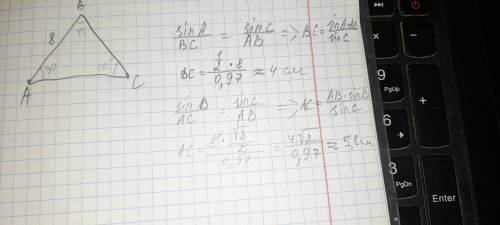 B
45
8
30
105°
A
C
sinA/BC = sinC/AB => BC = sinA·AB/sinC
BC = (1/2 · 8)/0,97 ≈ 4 см
sinB/AC = sinC/AB => AC = AB·sinB/sinC
AC = (8 · √2/2)/0,97 = 4√2/0,97 ≈ 5,8 см
× -
9
PgUp
+
6
3
PgDn
Enter